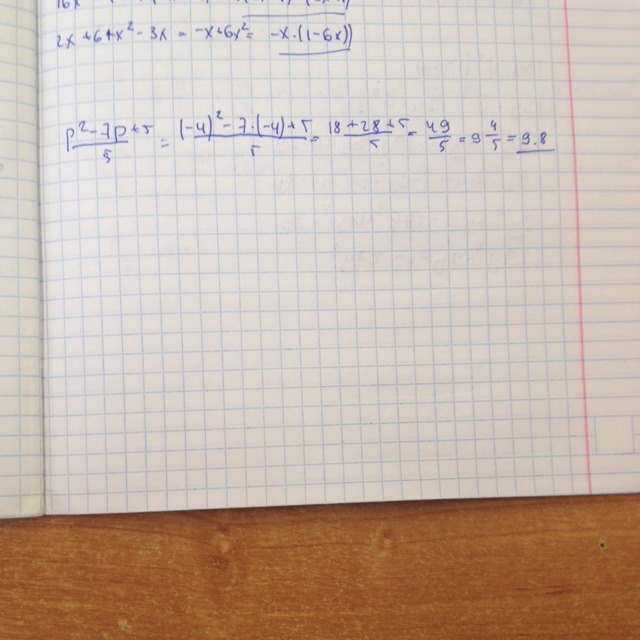 2x + 6 + x² - 3x = -x + 6x² = -x·(1-6x)
p² - 7p + 5 / 5 = (-4)² - 7·(-4) + 5 / 5 = 18 + 28 + 5 / 5 = 49 / 5 = 9 4/5 = 9.8